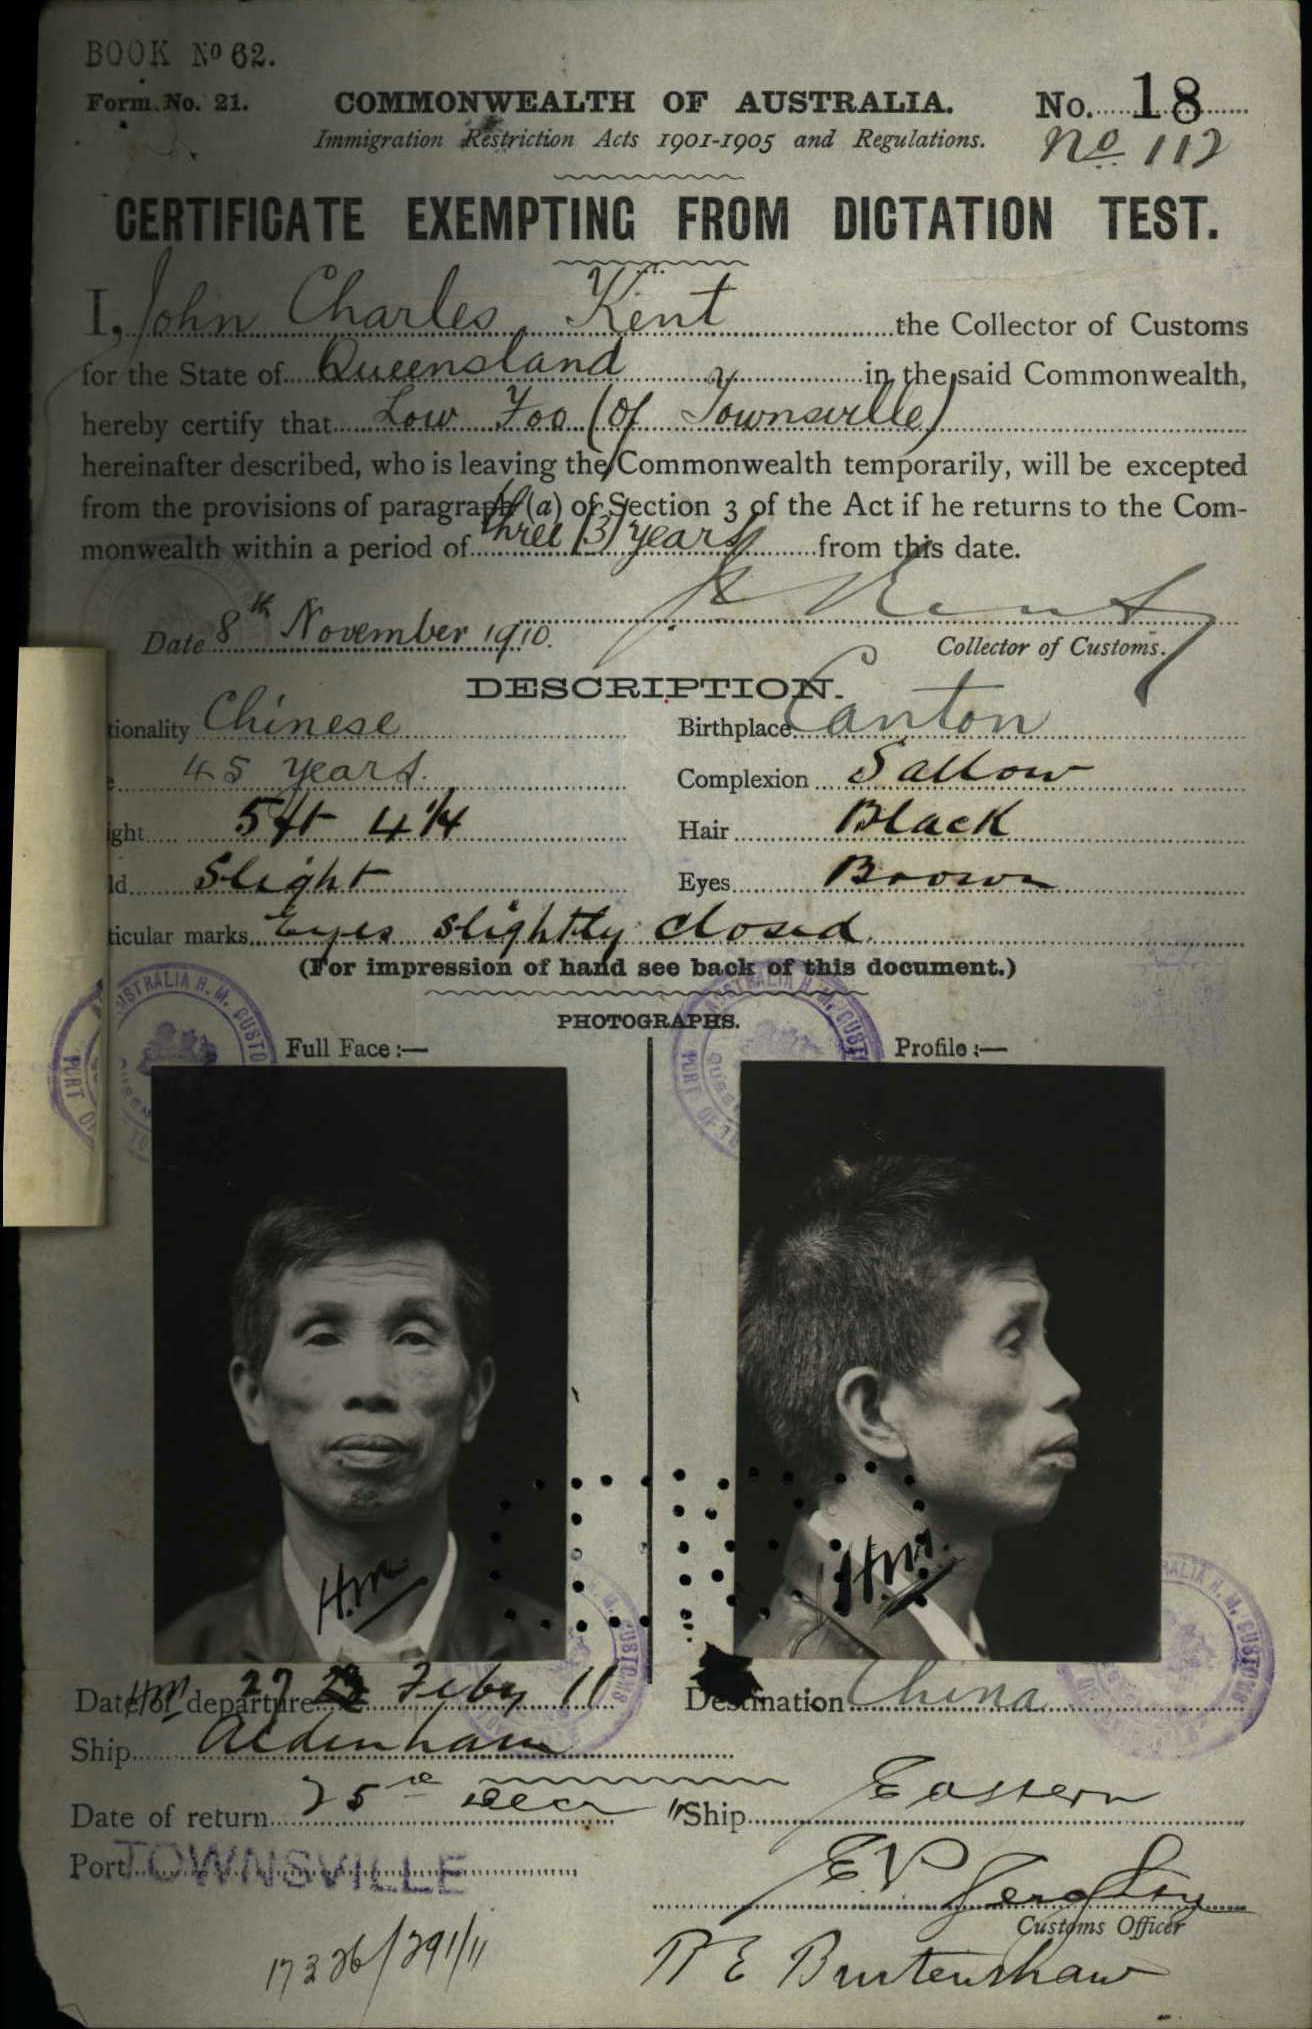 BOOK No 62.
Form No. 21.
COMMONWEALTH OF AUSTRALIA.
No. 18
Immigration Restriction Acts 1901-1905 and Regulations.
No 112
CERTIFICATE EXEMPTING FROM DICTATION TEST.
I, John Charles Kent the Collector of Customs
for the State of Queensland in the said Commonwealth,
hereby certify that Low Foo (of Townsville)
hereinafter described, who is leaving the Commonwealth temporarily, will be excepted
from the provisions of paragraph (a) of Section 3 of the Act if he returns to the Com-
monwealth within a period of three (3) years from this date.
Date 8th November 1910.
Kent
Collector of Customs.
DESCRIPTION.
tionality Chinese
Birthplace Canton
45 years.
Complexion Sallow
ght 5 ft 4 1/4
Hair Black
ld Slight
Eyes Brown
ticular marks Eyes slightly closed
(For impression of hand see back of this document.)
PHOTOGRAPHS.
Full Face :—
Profile :—
AUSTRALIA H. M. CUSTO
PORT OF
AUSTRALIA H. M. CUSTO
PORT OF
H.M
H.M.
RALIA H. M. CUSTOMS
H. M. CUSTOMS
Date of departure HM 27 Feby 11
Destination China
Ship Aldenham
Date of return 25th Decr "
Ship Eastern
Port TOWNSVILLE
Customs Officer
17326/291/11
R E Burtenshaw